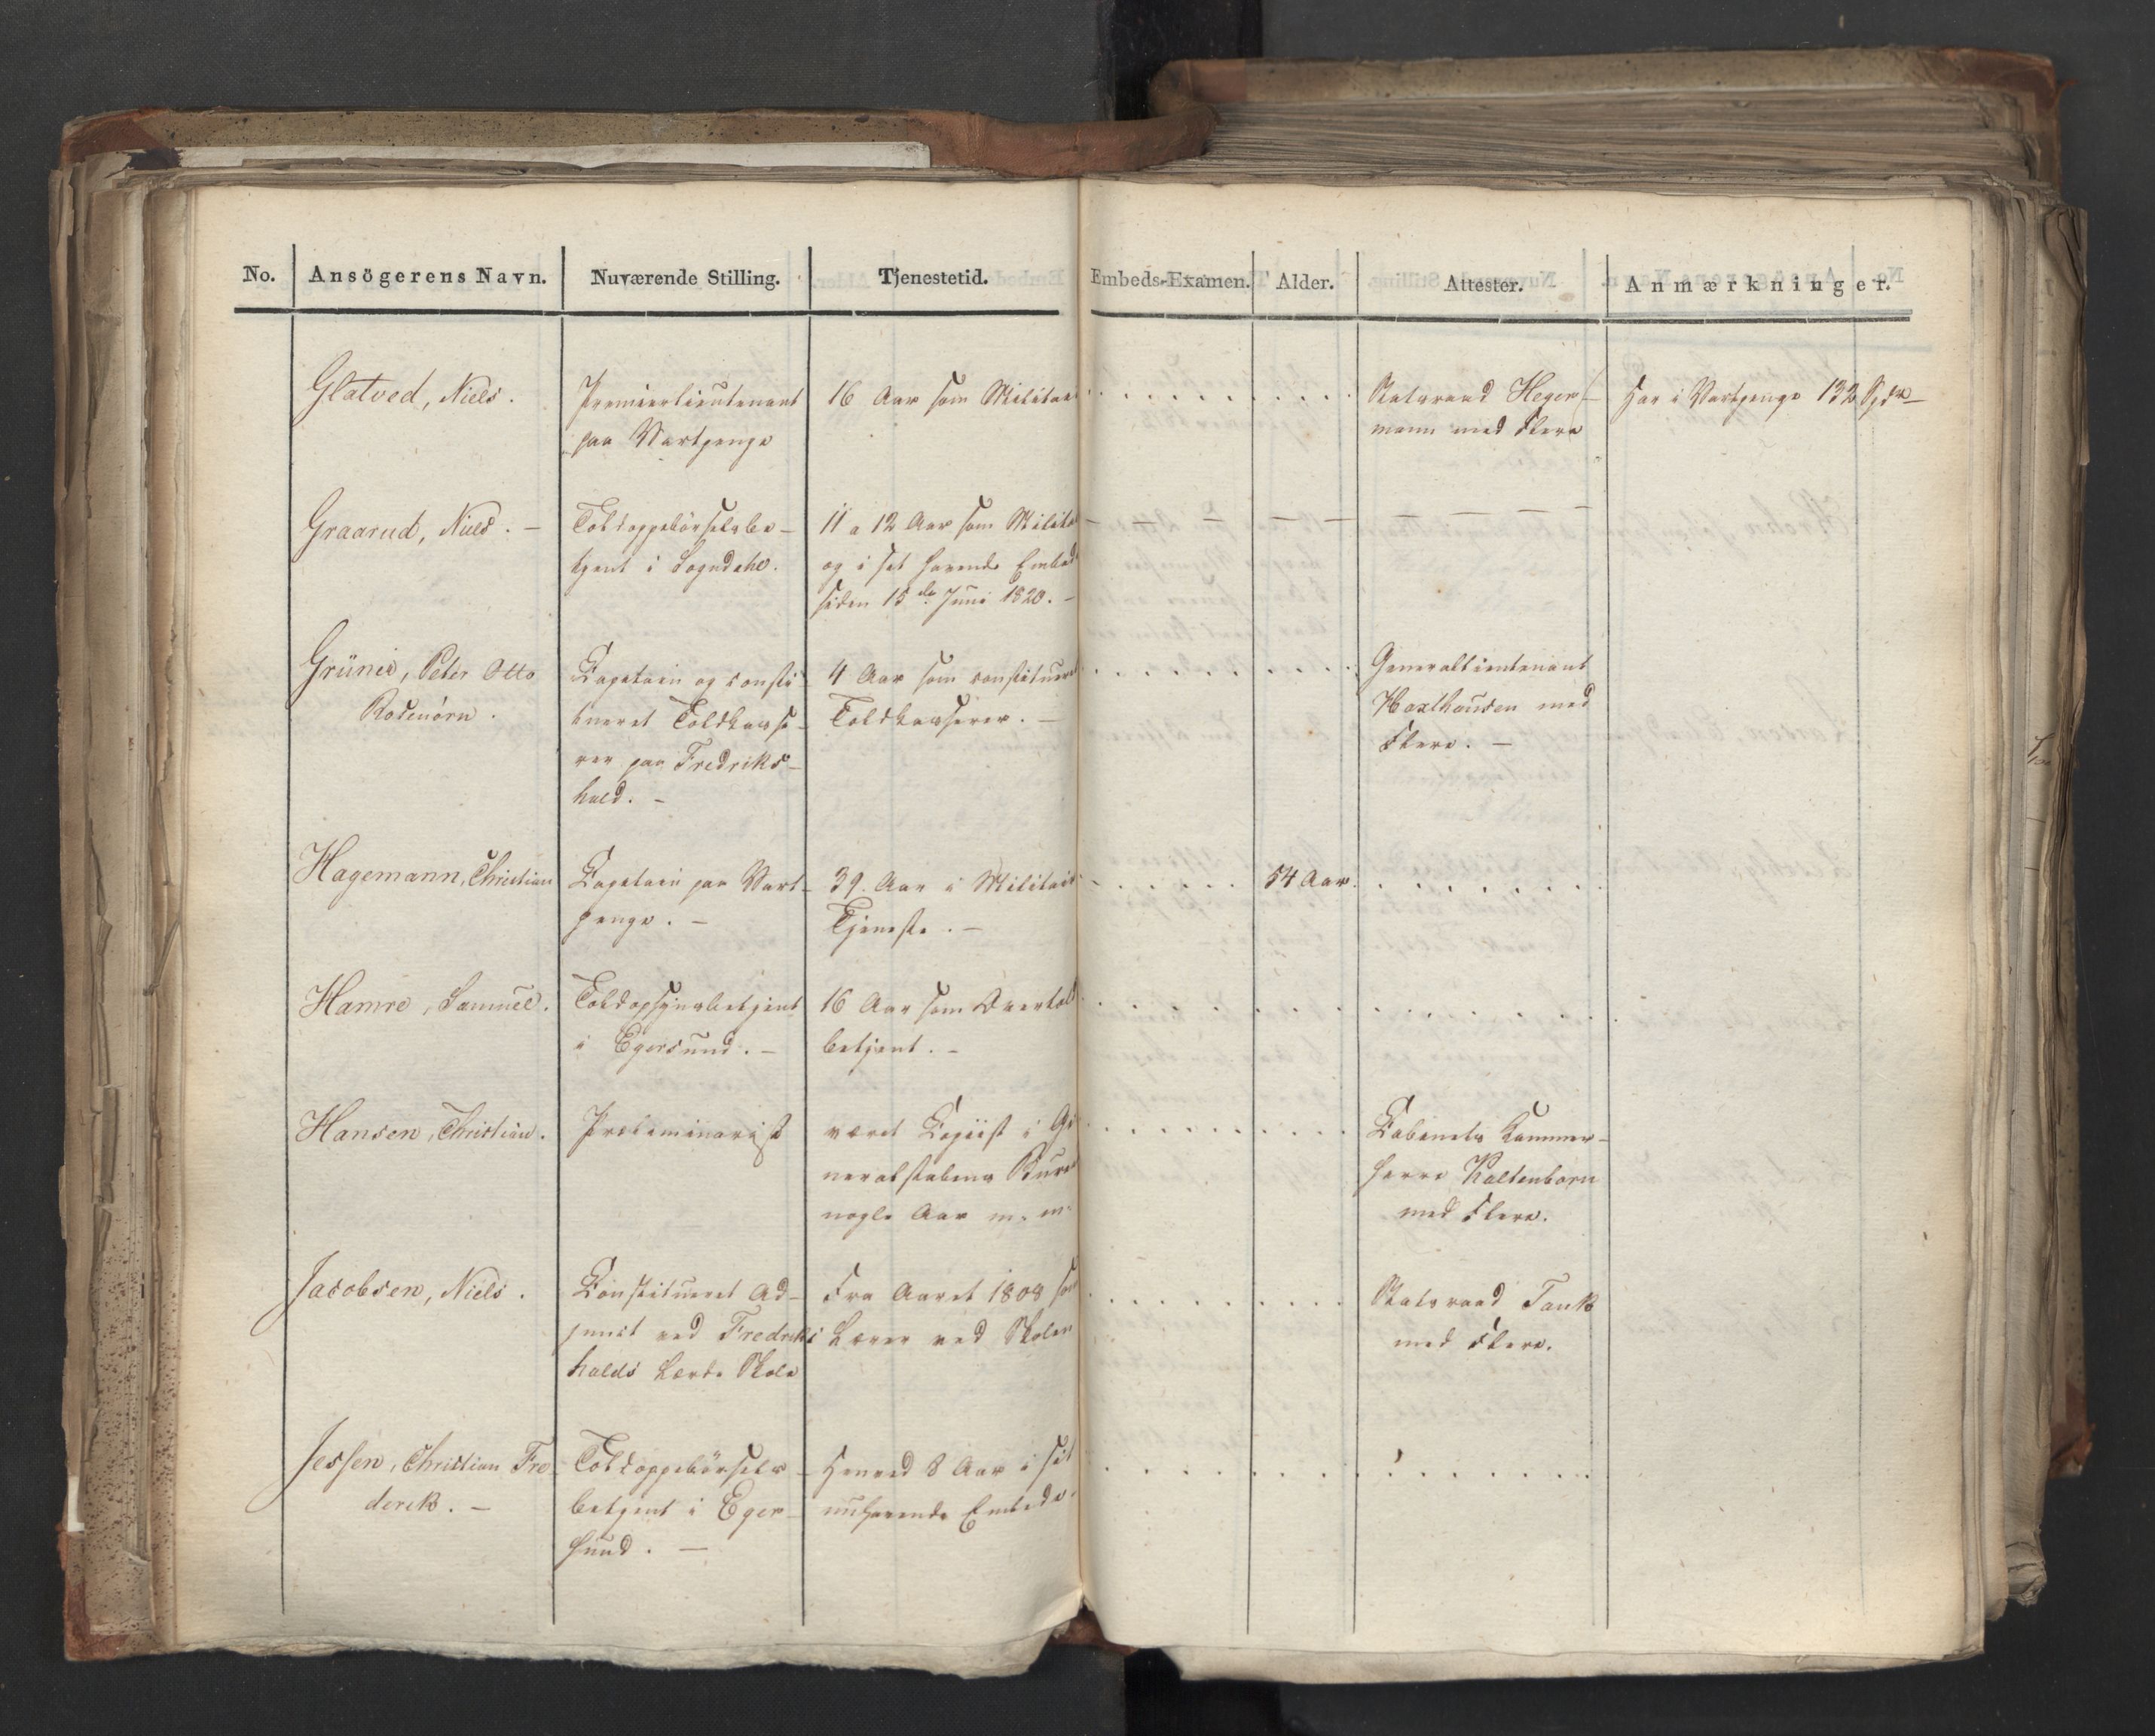 No. Ansögerens Navn. Nuværende Stilling. Tjenestetid. Embeds-Examen. Alder. Attester. Anmærkninger.
Glatved, Niels.
Premierlieutenant
paa Vartpenge
16 Aar som Militair
Statsraad Heger-
mann med Flere
Har i Vartpenge 132 Spdr
Graarud, Niels. -
Toldoppebörselsbe-
tjent i Sogndahl.
11 a 12 Aar som Militair
og i sit havende Embede
siden 15de Juni 1820. -
Grüner, Peter Otto
Rosenörn.
Capitain og consti-
tueret Toldkasse-
rer paa Fredriks-
hald. -
4 Aar som constitueret
Toldkasserer. -
Generallieutenant
Haxthausen med
Flere. -
Hagemann, Christian
Capitain paa Vart-
penge. -
39 Aar i Militair
Tjeneste. -
54 Aar.
Hamre, Samuel.
Toldopsynsbetjent
i Egersund. -
16 Aar som Overtold
betjent. -
Hansen, Christian.
Præliminarist
været Copiist i Ge
neralstabens Bureau
nogle Aar m. m.
Cabinets Kammer-
herre Kaltenborn
med Flere.
Jacobsen, Niels.
Constitueret Ad-
junct ved Fredriks
halds Lærde Skole
Fra Aaret 1808 som
Lærer ved Skolen
Statsraad Tank
med Flere.
Jessen, Christian Fre
derik. -
Toldoppebörsels-
betjent i Eger-
sund. -
Henved 8 Aar i sit
nuhavende Embede.